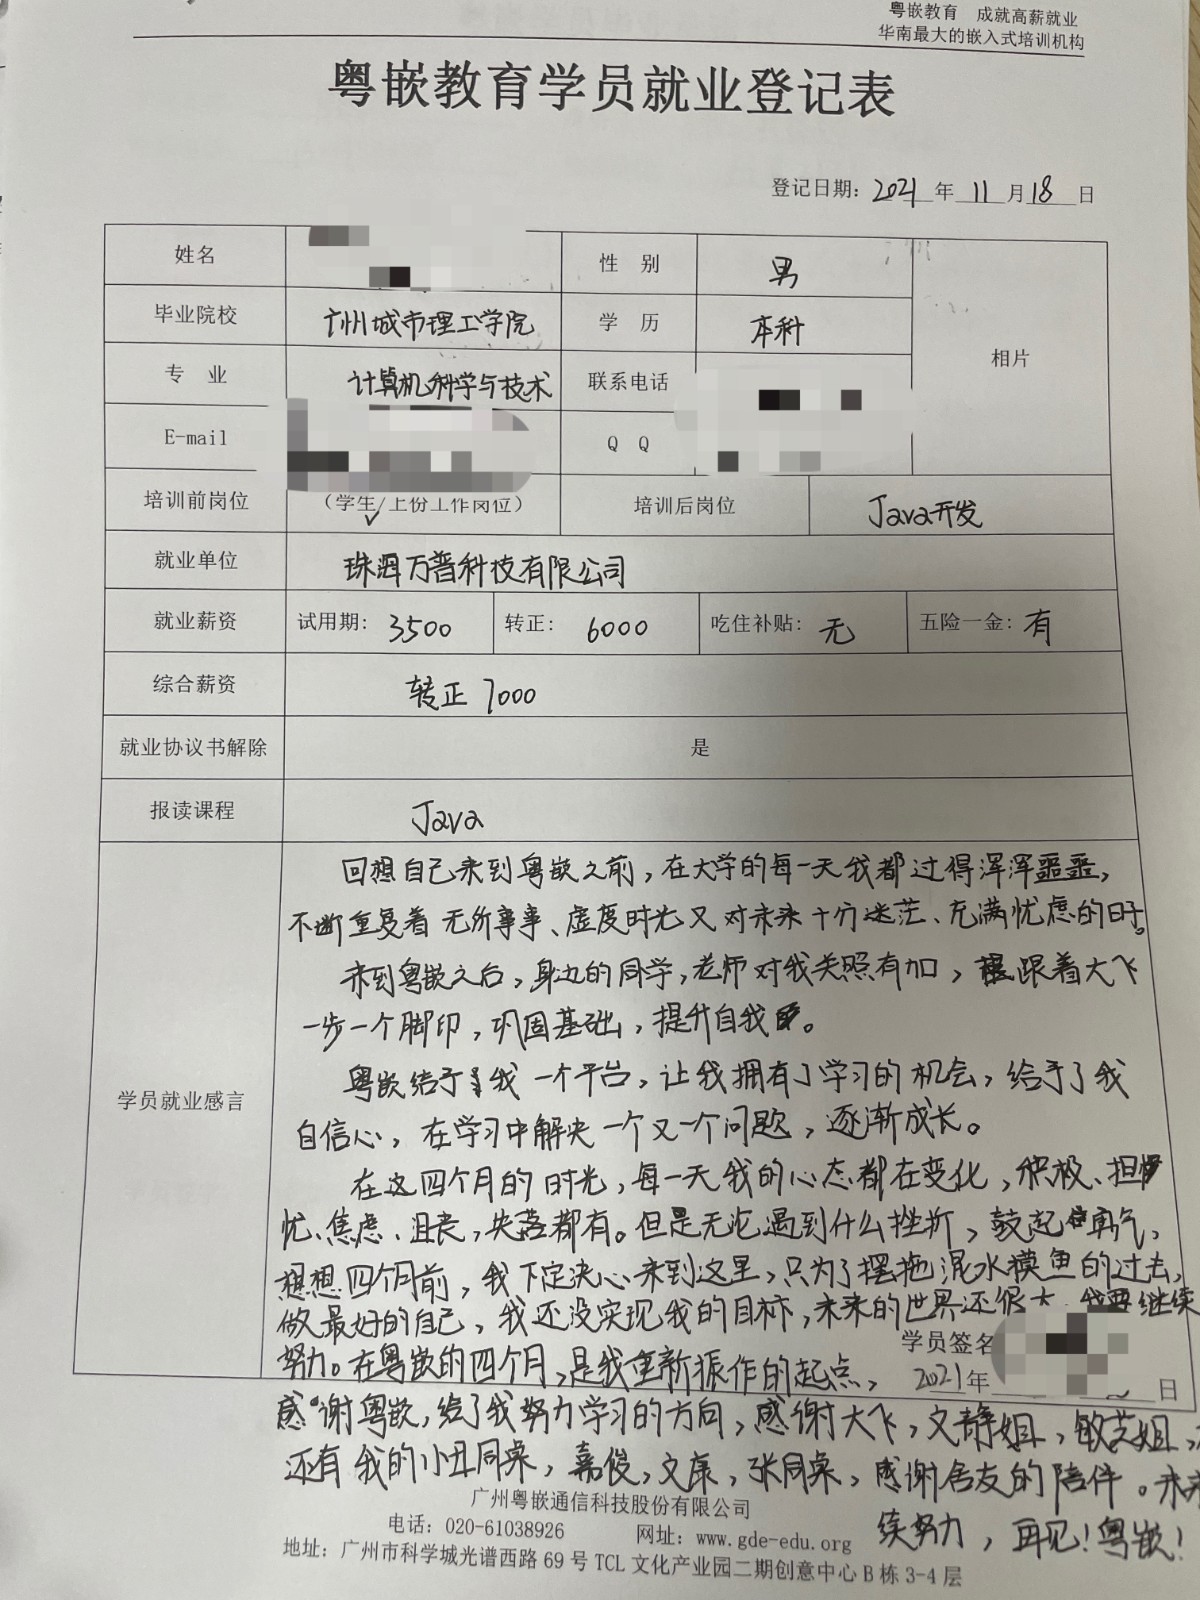 粤嵌教育 成就高薪就业
华南最大的嵌入式培训机构
粤嵌教育学员就业登记表
登记日期：2021年11月18日
姓名 性 别 男
毕业院校 广州城市理工学院 学 历 本科
相片
专 业 计算机科学与技术 联系电话
E-mail Q Q
培训前岗位 （学生/上份工作岗位） 培训后岗位 Java开发
就业单位 珠海万普科技有限公司
就业薪资 试用期：3500 转正：6000 吃住补贴：无 五险一金：有
综合薪资 转正 7000
就业协议书解除 是
报读课程 Java
学员就业感言
回想自己来到粤嵌之前，在大学的每一天我都过得浑浑噩噩，
不断重复着无所事事、虚度时光又对未来十分迷茫、充满忧虑的日子。
来到粤嵌之后，身边的同学，老师对我关照有加，跟着大飞
一步一个脚印，巩固基础，提升自我。
粤嵌给予我一个平台，让我拥有了学习的机会，给予了我
自信心，在学习中解决一个又一个问题，逐渐成长。
在这四个月的时光，每一天我的心态都在变化，积极、担
忧、焦虑、沮丧，失落都有。但是无论遇到什么挫折，鼓起勇气，
想想四个月前，我下定决心来到这里，只为了摆拖混水摸鱼的过去，
做最好的自己，我还没实现我的目标，未来的世界还很大，我要继续
学员签名
努力。在粤嵌的四个月，是我重新振作的起点，
2021年 日
感谢粤嵌，给了我努力学习的方向，感谢大飞，文静姐，敏芝姐，
还有我的小丑同桌，嘉俊，文康，张同桌，感谢舍友的陪伴。未来
续努力，再见！粤嵌！
广州粤嵌通信科技股份有限公司
电话：020-61038926 网址：www.gde-edu.org
地址：广州市科学城光谱西路69号TCL文化产业园二期创意中心B栋3-4层